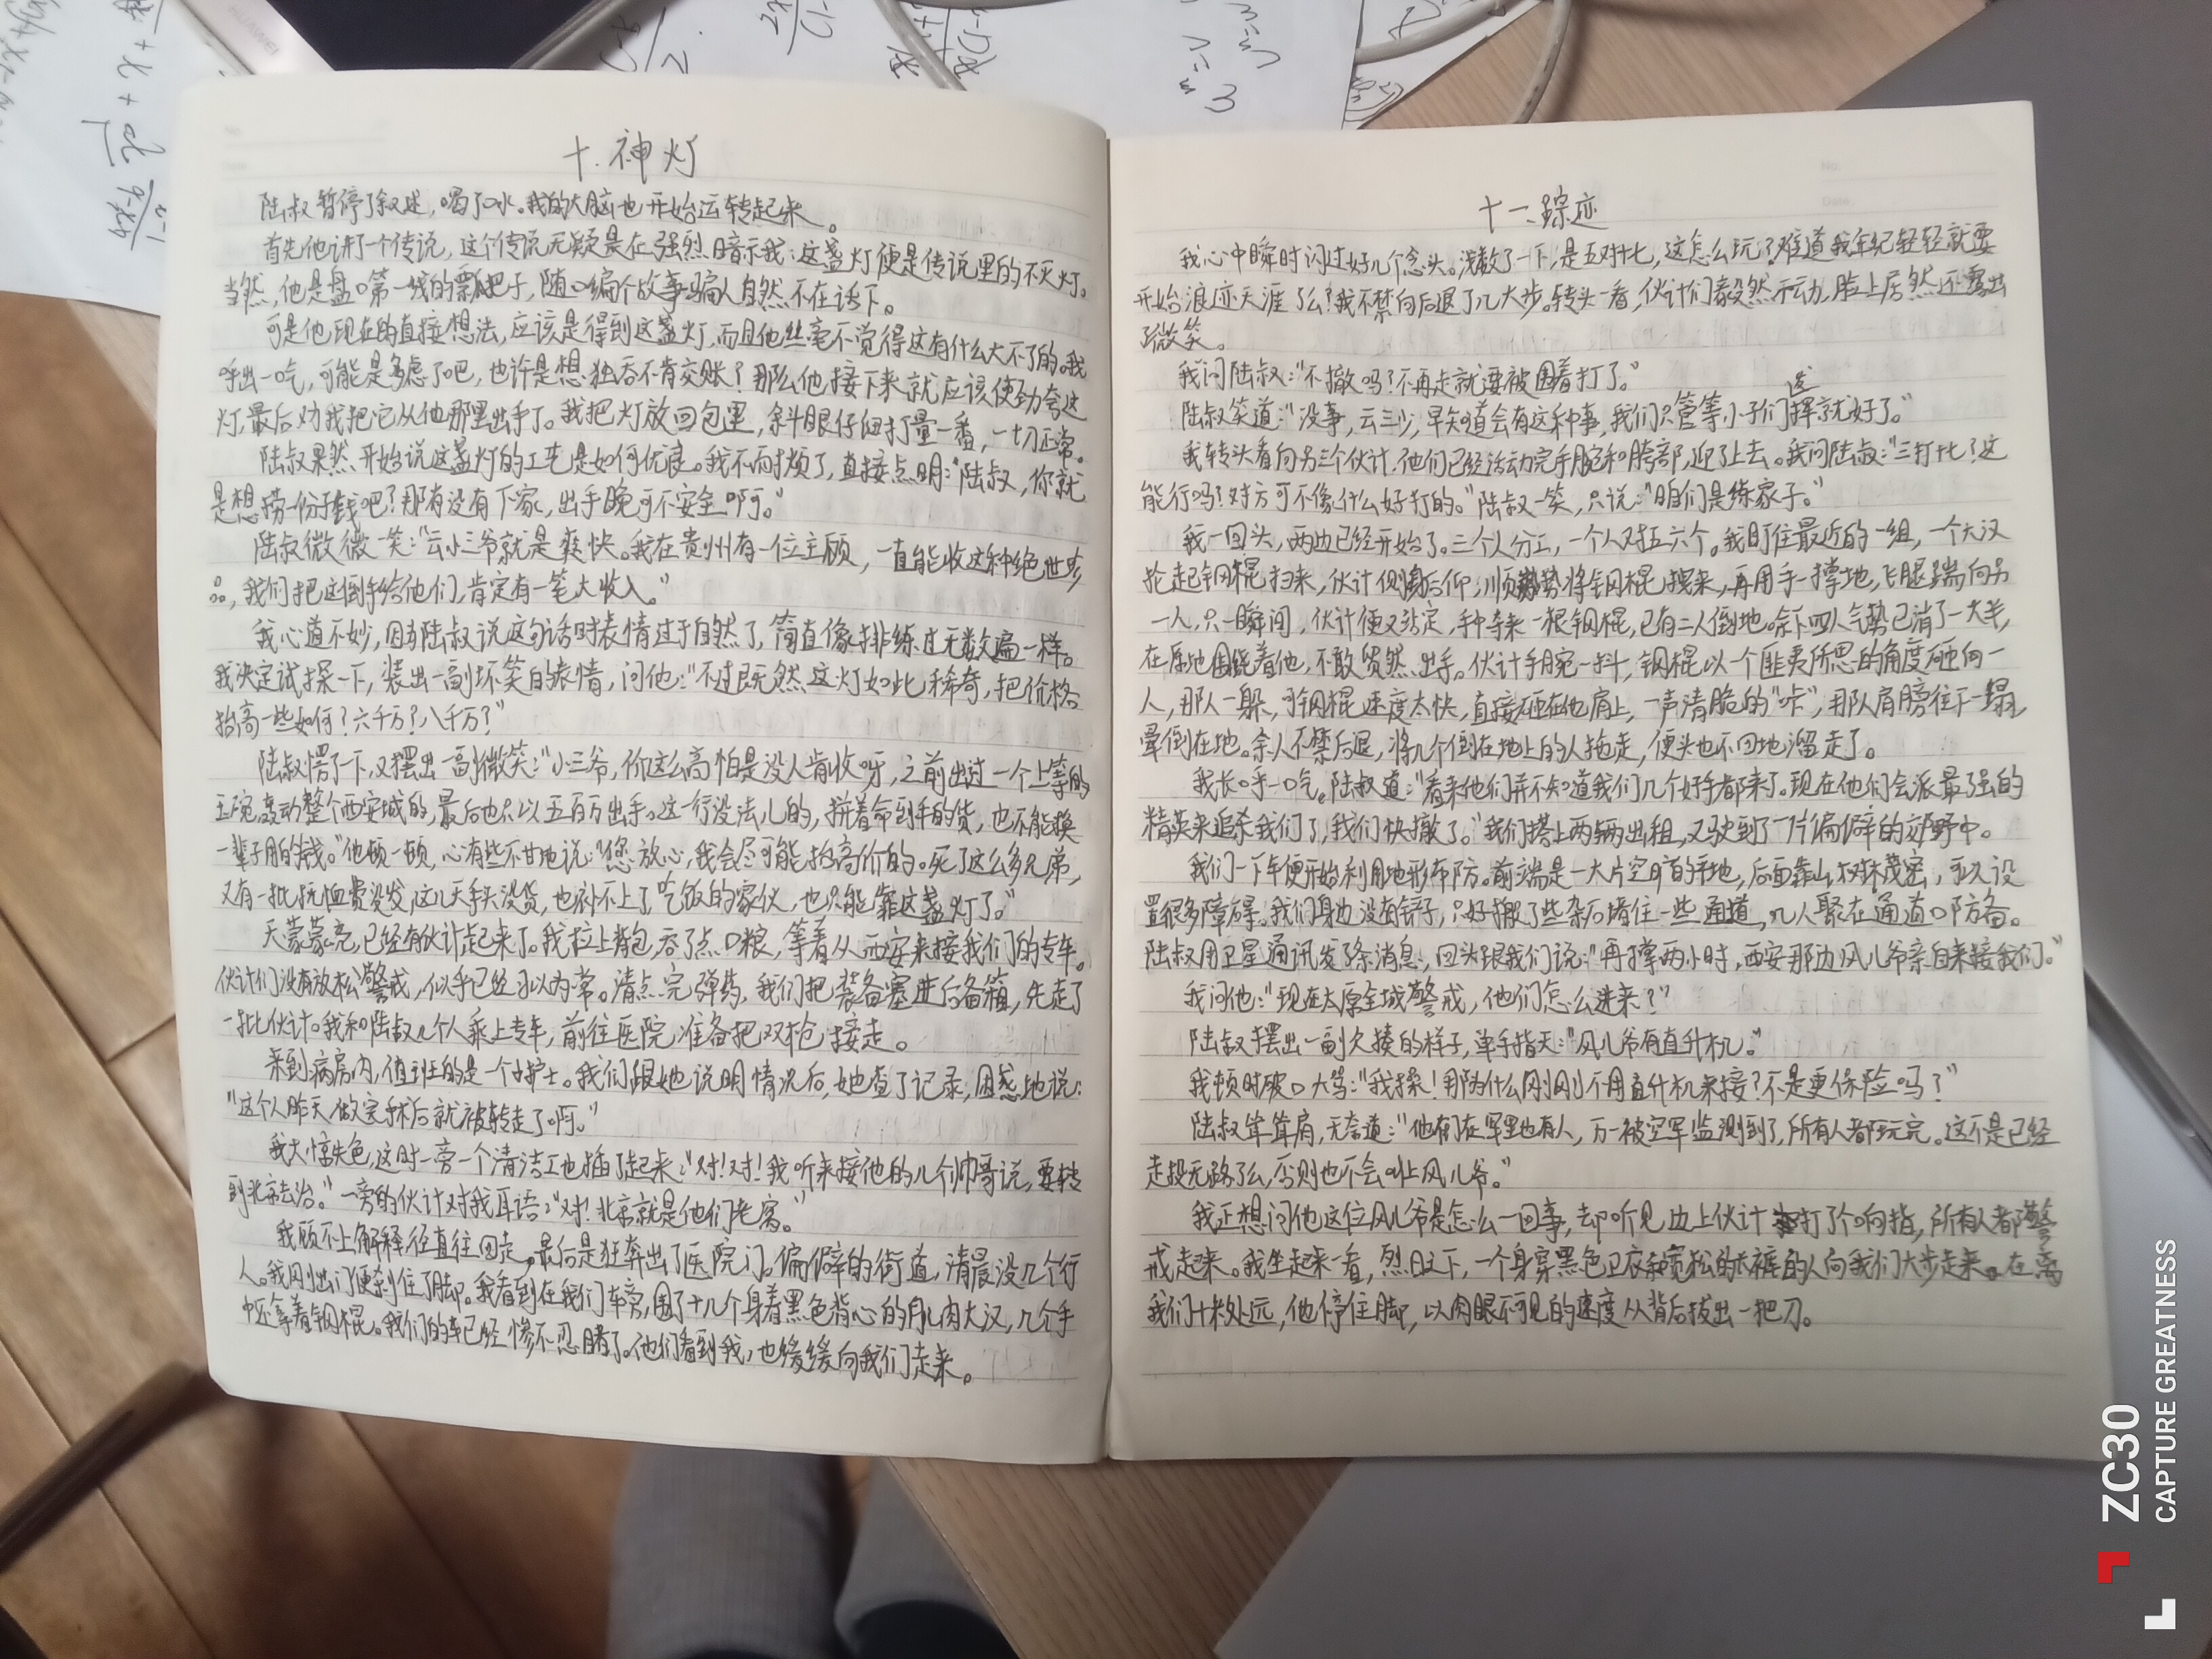 十.神灯
陆叔暂停了叙述，喝了口水。我的大脑也开始运转起来。
首先他讲了一个传说，这个传说无疑是在强烈暗示我：这盏灯便是传说里的不灭灯。
当然，他是盘口第一线的瓢把子，随口编个故事骗人自然不在话下。
可是他现在的直接想法，应该是得到这盏灯，而且他丝毫不觉得这有什么大不了的。我
呼出一口气，可能是多虑了吧，也许是想独吞不肯交账？那么他接下来就应该使劲夸这
灯，最后劝我把它从他那里出手了。我把灯放回包里，斜眼仔细打量一番，一切正常。
陆叔果然开始说这盏灯的工艺是如何优良。我不耐烦了，直接点明：“陆叔，你就
是想捞一份子钱吧？那有没有下家，出手晚可不安全啊。”
陆叔微微一笑：“云小三爷就是爽快。我在贵州有一位主顾，一直能收这种绝世珍
品，我们把这倒手给他们，肯定有一笔大收入。”
我心道不妙，因为陆叔说这句话时表情过于自然了，简直像排练过无数遍一样。
我决定试探一下，装出一副坏笑的表情，问他：“不过既然这灯如此稀奇，把价格
抬高一些如何？六千万？八千万？”
陆叔愣了下，又摆出一副微笑：“小三爷，你这么高怕是没人肯收呀，之前出过一个上等的
玉碗，轰动整个西安城的，最后也只以五百万出手。这一行没法儿的，拼着命到手的货，也不能换
一辈子用的钱。”他顿一顿，心有些不甘地说：“您放心，我会尽可能抬高价的。死了这么多兄弟，
又有一批抚恤费没发，这几天手头没货，也补不上了吃饭的家伙，也只能靠这盏灯了。”
天蒙蒙亮，已经有伙计起来了。我拉上背包，吞了点口粮，等着从西安来接我们的专车。
伙计们没有放松警戒，似乎已经习以为常。清点完弹药，我们把装备塞进后备箱，先走了
一批伙计。我和陆叔几个人乘上专车，前往医院，准备把双枪接走。
来到病房内，值班的是一个小护士。我们跟她说明情况后，她查了记录，困惑地说：
“这个人昨天做完手术后就被转走了啊。”
我大惊失色，这时一旁一个清洁工也插了起来：“对！对！我听来接他的几个帅哥说，要转
到北京去治。”一旁的伙计对我耳语：“对！北京就是他们老窝。”
我顾不上解释，径直往回走，最后是狂奔出了医院门。偏僻的街道，清晨没几个行
人。我刚出门便刹住了脚。我看到在我们车旁，围了十几个身着黑色背心的肌肉大汉，几个手
中还拿着钢棍。我们的车已经惨不忍睹了。他们看到我，也缓缓向我们走来。
十一、踪迹
我心中瞬时闪过好几个念头。浅数了一下，是五对十七，这怎么玩？难道我年纪轻轻就要
开始浪迹天涯了么？我不禁向后退了几大步。转头一看，伙计们毅然不动，脸上居然还露出
了微笑。
我问陆叔：“不撤吗？不再走就要被围着打了。”
陆叔笑道：“没事，云三少，早知道会有这种事，我们只管等小子们发挥就好了。”
我转头看向另三个伙计，他们已经活动完手腕和胯部，迎了上去。我问陆叔：“三打十七？这
能行吗？对方可不像什么好打的。”陆叔一笑，只说：“咱们是练家子。”
我一回头，两边已经开始了。三个人分工，一个人对五六个。我盯住最近的一组，一个大汉
抡起钢棍扫来，伙计侧身后仰，顺势将钢棍拽来，再用手一撑地，飞腿踹向另
一人，只一瞬间，伙计便又站定，手中夺来一根钢棍，已有二人倒地。余下四人气势已消了一大半，
在原地围绕着他，不敢贸然出手。伙计手腕一抖，钢棍以一个匪夷所思的角度砸向一
人，那人一躲，可钢棍速度太快，直接砸在他肩上，一声清脆的“咔”，那人肩膀往下一塌，
晕倒在地。余人不禁后退，将几个倒在地上的人拖走，便头也不回地溜走了。
我长呼一口气。陆叔道：“看来他们并不知道我们几个好手都来了。现在他们会派最强的
精英来追杀我们了，我们快撤了。”我们搭上两辆出租，又驶到了一片偏僻的郊野中。
我们一下车便开始利用地形布防。前端是一大片空旷的平地，后面靠山，树林茂密，可以设
置很多障碍。我们身边没有铲子，只好搬了些杂石堵住一些通道，几人聚在通道口防备。
陆叔用卫星通讯发了条消息，回头跟我们说：“再撑两小时，西安那边风儿爷亲自来接我们。”
我问他：“现在太原全城警戒，他们怎么进来？”
陆叔摆出一副欠揍的样子，单手指天：“风儿爷有直升机。”
我顿时破口大骂：“我操！那为什么刚刚不用直升机来接？不是更保险吗？”
陆叔耸耸肩，无奈道：“他们在军里也有人，万一被空军监测到了，所有人都玩完。这不是已经
走投无路了么，否则也不会叫上风儿爷。”
我正想问他这位风儿爷是怎么一回事，却听见边上伙计打了个响指，所有人都警
戒起来。我坐起来一看，烈日之下，一个身穿黑色卫衣和宽松的长裤的人向我们大步走来。在离
我们十米处远，他停住脚，以肉眼不可见的速度从背后拔出一把刀。
ZC30
CAPTURE GREATNESS